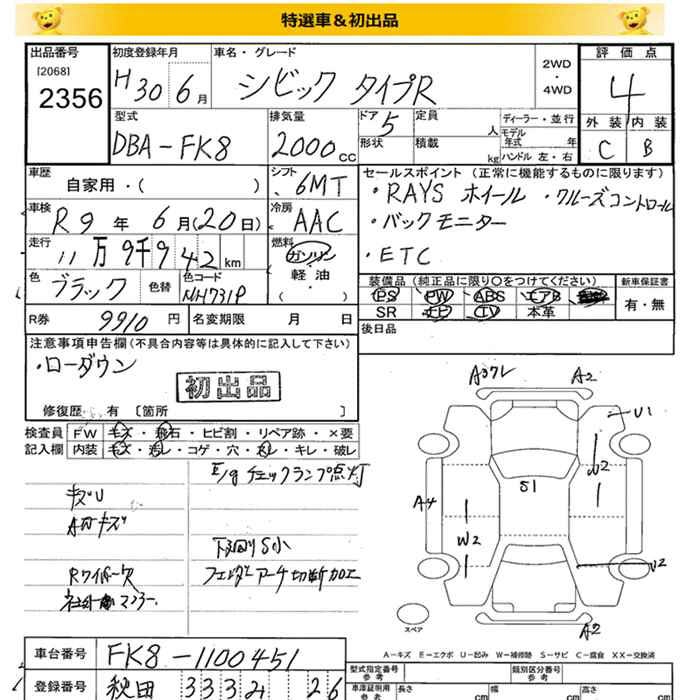 特選車＆初出品
出品番号
[2068]
2356
初度登録年月
H30 6月
車名・グレード
シビック タイプR
2WD
・
4WD
評価点
4
外装 内装
C B
型式
DBA-FK8
排気量
2000cc
ドア 5
形状
定員 人
積載 kg
ディーラー・並行
モデル年式 年
ハンドル 左・右
車歴
自家用・( )
シフト
6MT
セールスポイント (正常に機能するものに限ります)
・RAYS ホイール ・クルーズコントロール
・バックモニター
・ETC
車検
R9年 6月(20日)
冷房
AAC
走行
11万9千942km
燃料
ガソリン
軽・油
( )
色
ブラック
色替
色コード
NH731P
装備品 (純正品に限り○をつけてください)
PS PW ABS エアB
SR ナビ TV 本革
新車保証書
有・無
R券
9910円
名変期限 月 日
後日品
注意事項申告欄(不具合内容等は具体的に記入して下さい)
・ローダウン
初出品
修復歴 有 [箇所 ]
検査員 FW キズ・飛石・ヒビ割・リペア跡・×要
記入欄 内装 キズ・汚レ・コゲ・穴・スレ・キレ・破レ
E/gチェックランプ点灯
キズU
下廻りS小
Rワイパー欠
フェンダーアーチ切断加工
社外マフラー
A3クレ
A2
U1
W2
S1
A4
W2
U2
A2
スペア
A-キズ E-エクボ U-凹み W-補修跡 S-サビ C-腐食 XX-交換済
車台番号
FK8-1100451
型式指定番号
参考
類別区分番号
参考
登録番号
秋田 333 み 26
車庫証明用
参考
長さ cm
幅 cm
高さ cm